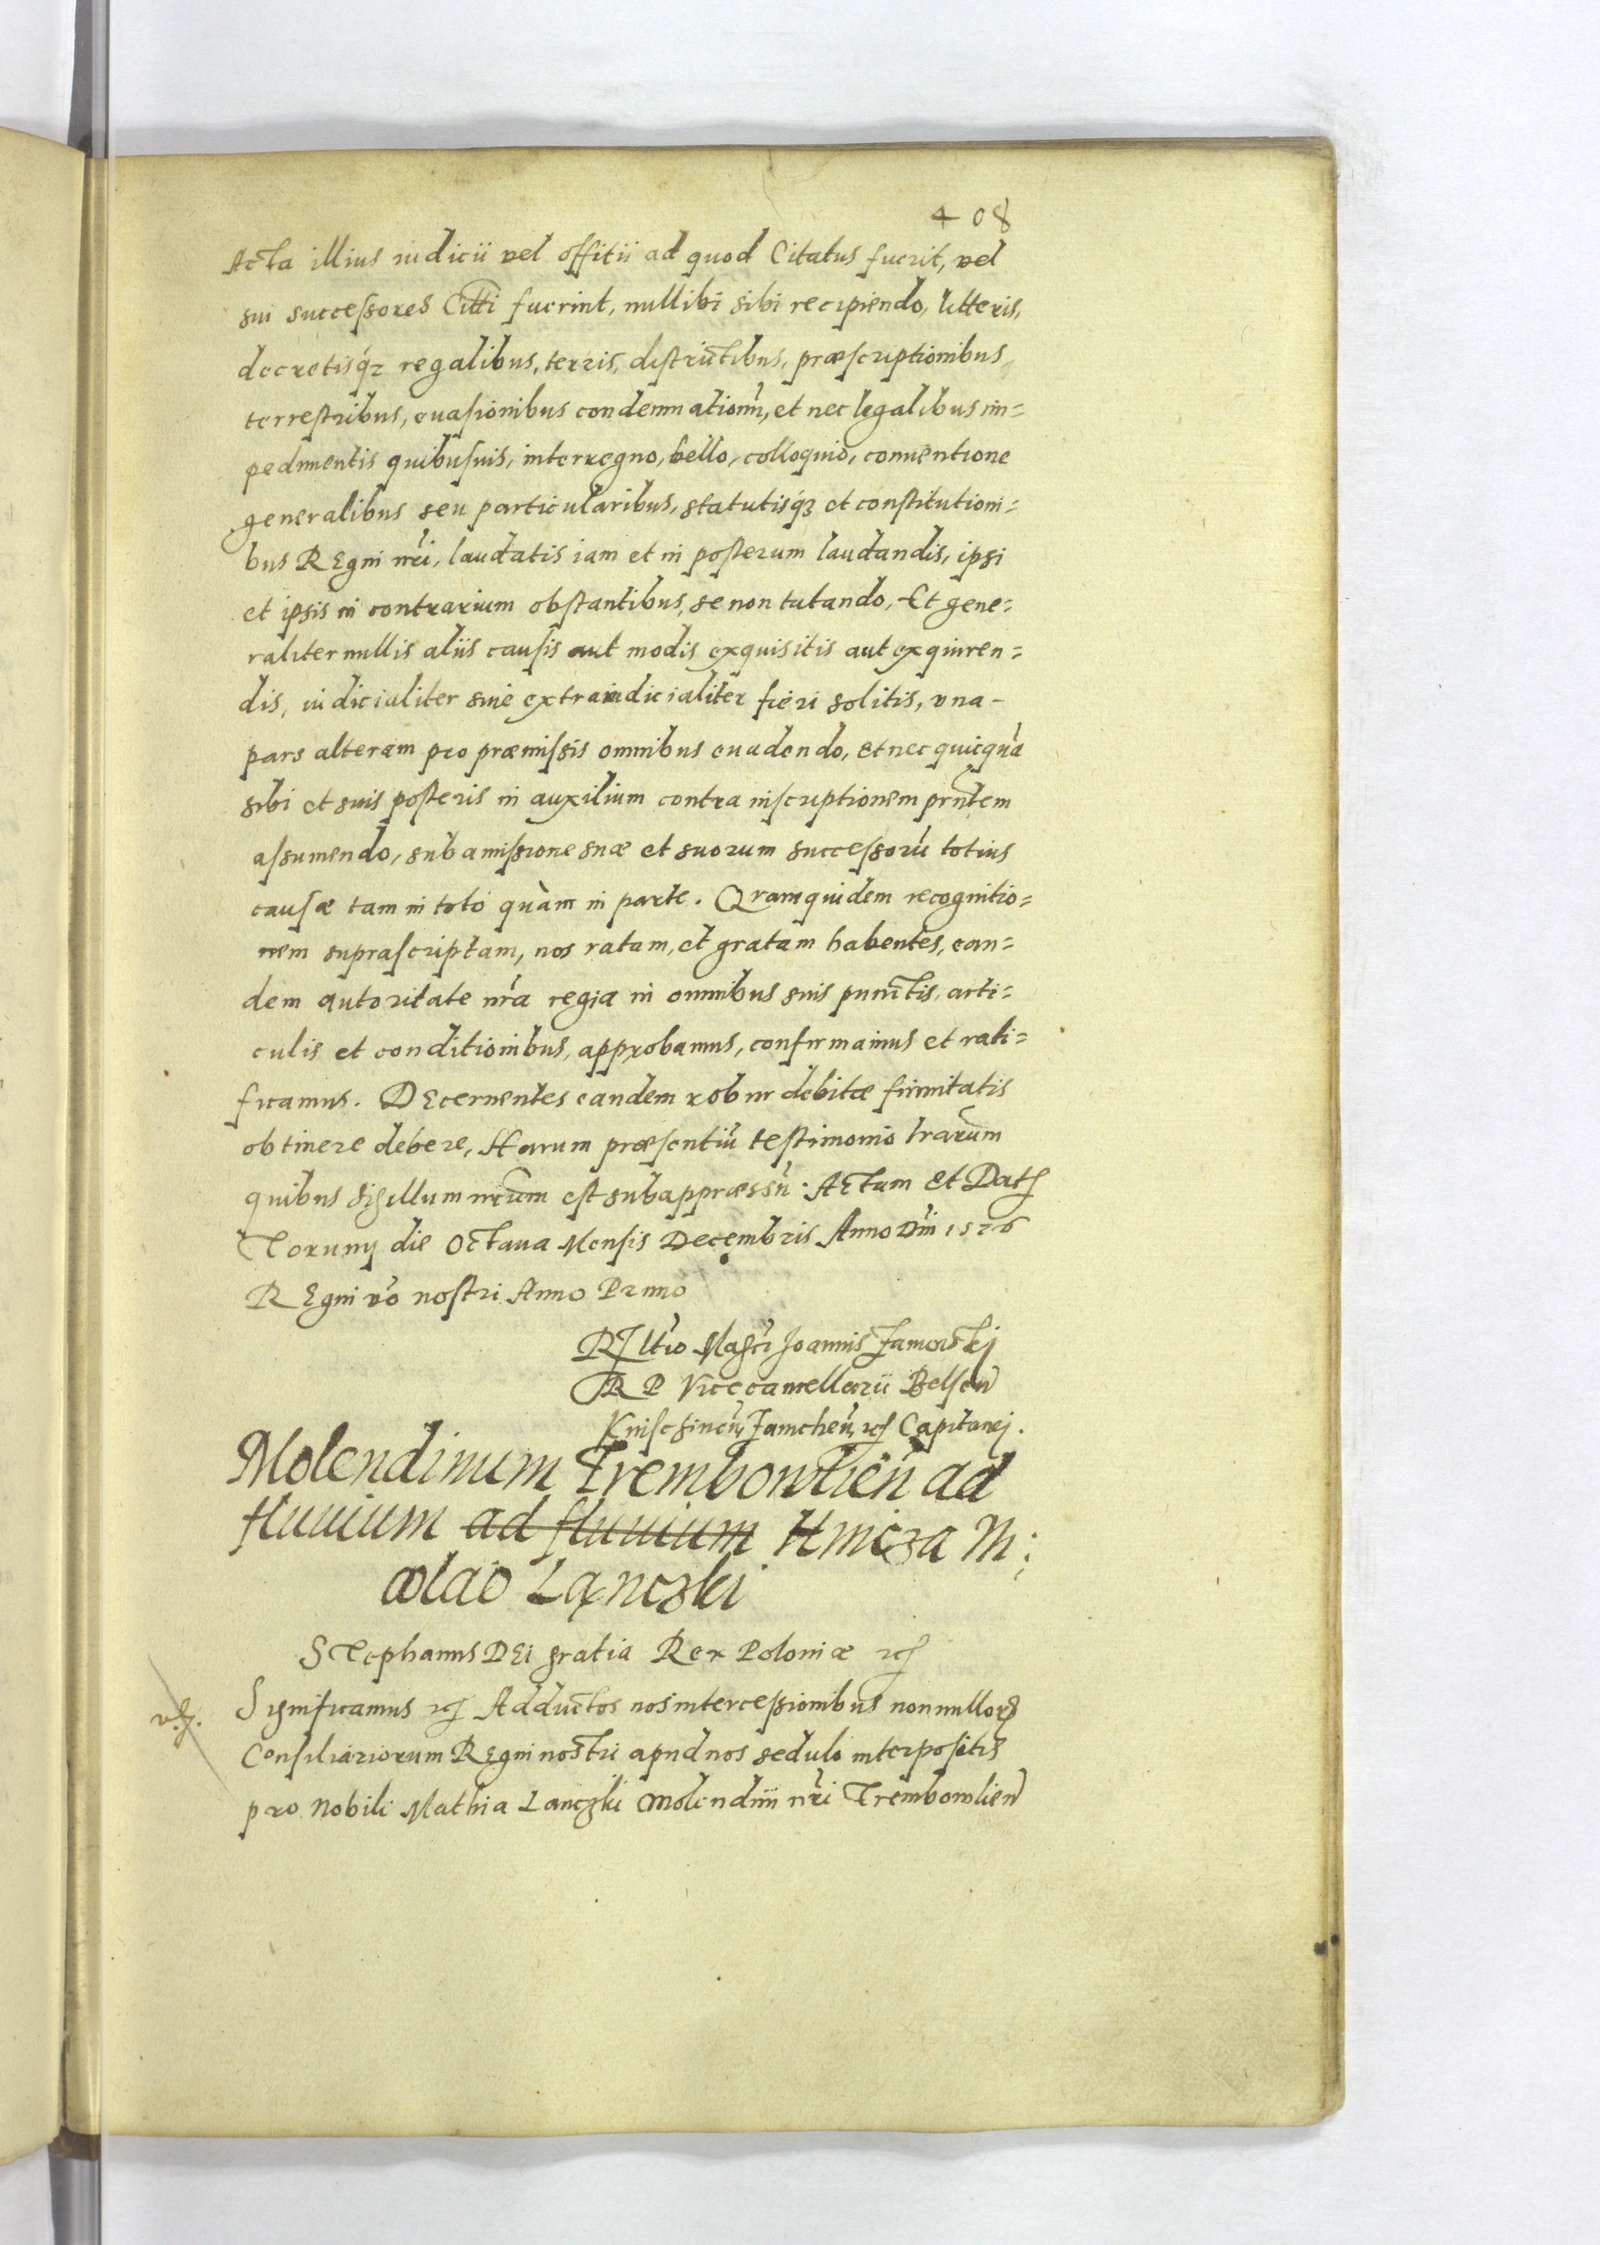 408
Acta illius iudicii vel offitii ad quod Citatus fuerit, vel
sui successores Citti fuerint, nullibi sibi recipiendo, litteris,
decretisq3 regalibus, terris, districtibus, præscriptionibus
terrestribus, euasionibus condemnationũ, et nec legalibus im=
pedimentis quibusuis, interregno, bello, colloquio, conuentione
generalibus seu particularibus, statutisq3 et constitutioni=
bus REgni nri, laudatis iam et in posterum laudandis, ipsi
et ipsis in contrarium obstantibus, se non tutando. Et gene=
raliter nullis aliis causis aut modis exquisitis aut exquiren=
dis, iudicialiter siue extraiudicialiter fieri solitis, vna-
pars alteram pro præmissis omnibus euadendo, et nec quicquã
sibi et suis posteris in auxilium contra inscriptionem prntem
assumendo, sub amissione suæ et suorum successorũ totius
causæ tam in toto quàm in parte. Qvam quidem recognitio=
nem suprascriptam, nos ratam, et gratam habentes, ean=
dem autoritate nra regia in omnibus suis punctis, arti=
culis et conditionibus, approbamus, confirmamus et rati=
ficamus. DEcernentes eandem robur debitæ firmitatis
obtinere debere, Harum præsentiũ testimonio lrarum
quibus sigillum nrum est subappræssũ. Actum et Dat
Toruny die Octaua Mensis Decembris Anno Dni 1576
REgni vo nostri Anno Primo
Rltio Magci Joannis Zamoiskj
R P Vicecancellarii Belsen
Knischinen, Zamchen, Capitanej.
Molendinum Trembowlien ad
fluuium ad fluuium Hnicza M:
colao Lanczki
STephanus DEi gratia Rex Poloniæ
Significamus Adductos nos intercessionibus nonnullor
Consiliariorum REgni nostri apud nos sedulo interpositis
pro Nobili Mathia Lanczki Molendini nri Trembowlien